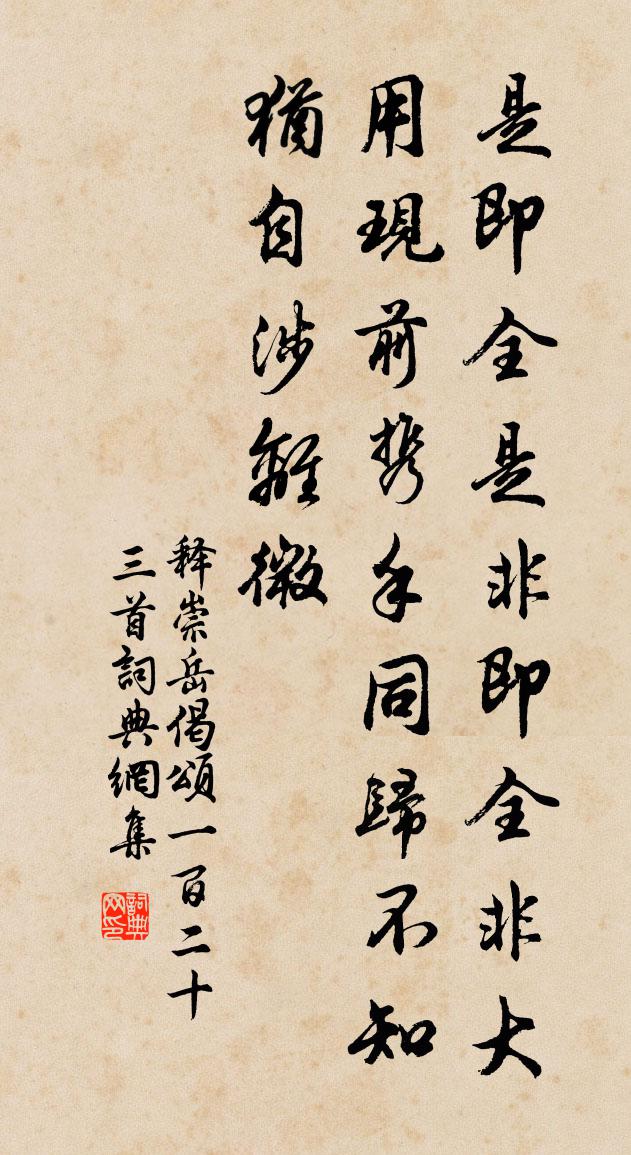 是即全是非即全非大
用現前携手同歸不知
猶自涉離微
释崇岳偈頌一百二十
三首詞典網集
詞典网印